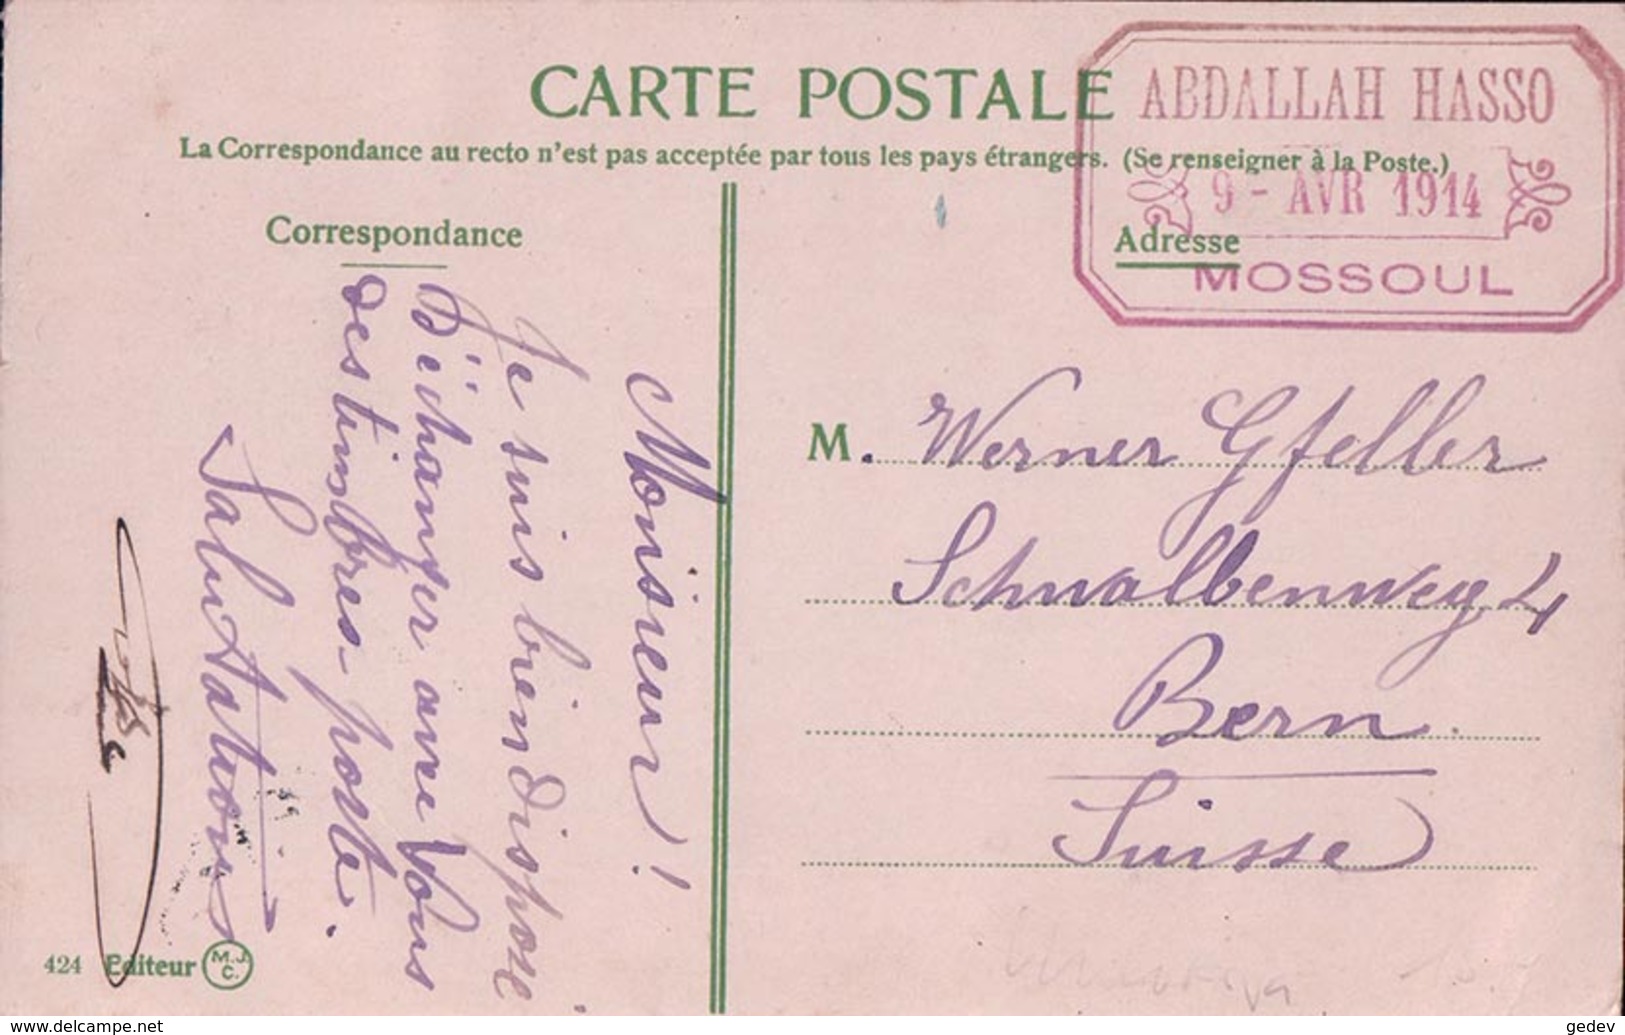 CARTE POSTALE
La Correspondance au recto n'est pas acceptée par tous les pays étrangers. (Se renseigner à la Poste.)
ABDALLAH HASSO
9 - AVR 1914
MOSSOUL
Correspondance
Adresse
Monsieur!
Je suis bien disposé
D'échanger avec Vous
des timbres-poste.
Salutations
M. Werner Gfeller
Schwalbenweg 4
Bern
Suisse
424 Editeur M.J.C.
www.delcampe.net
gedev